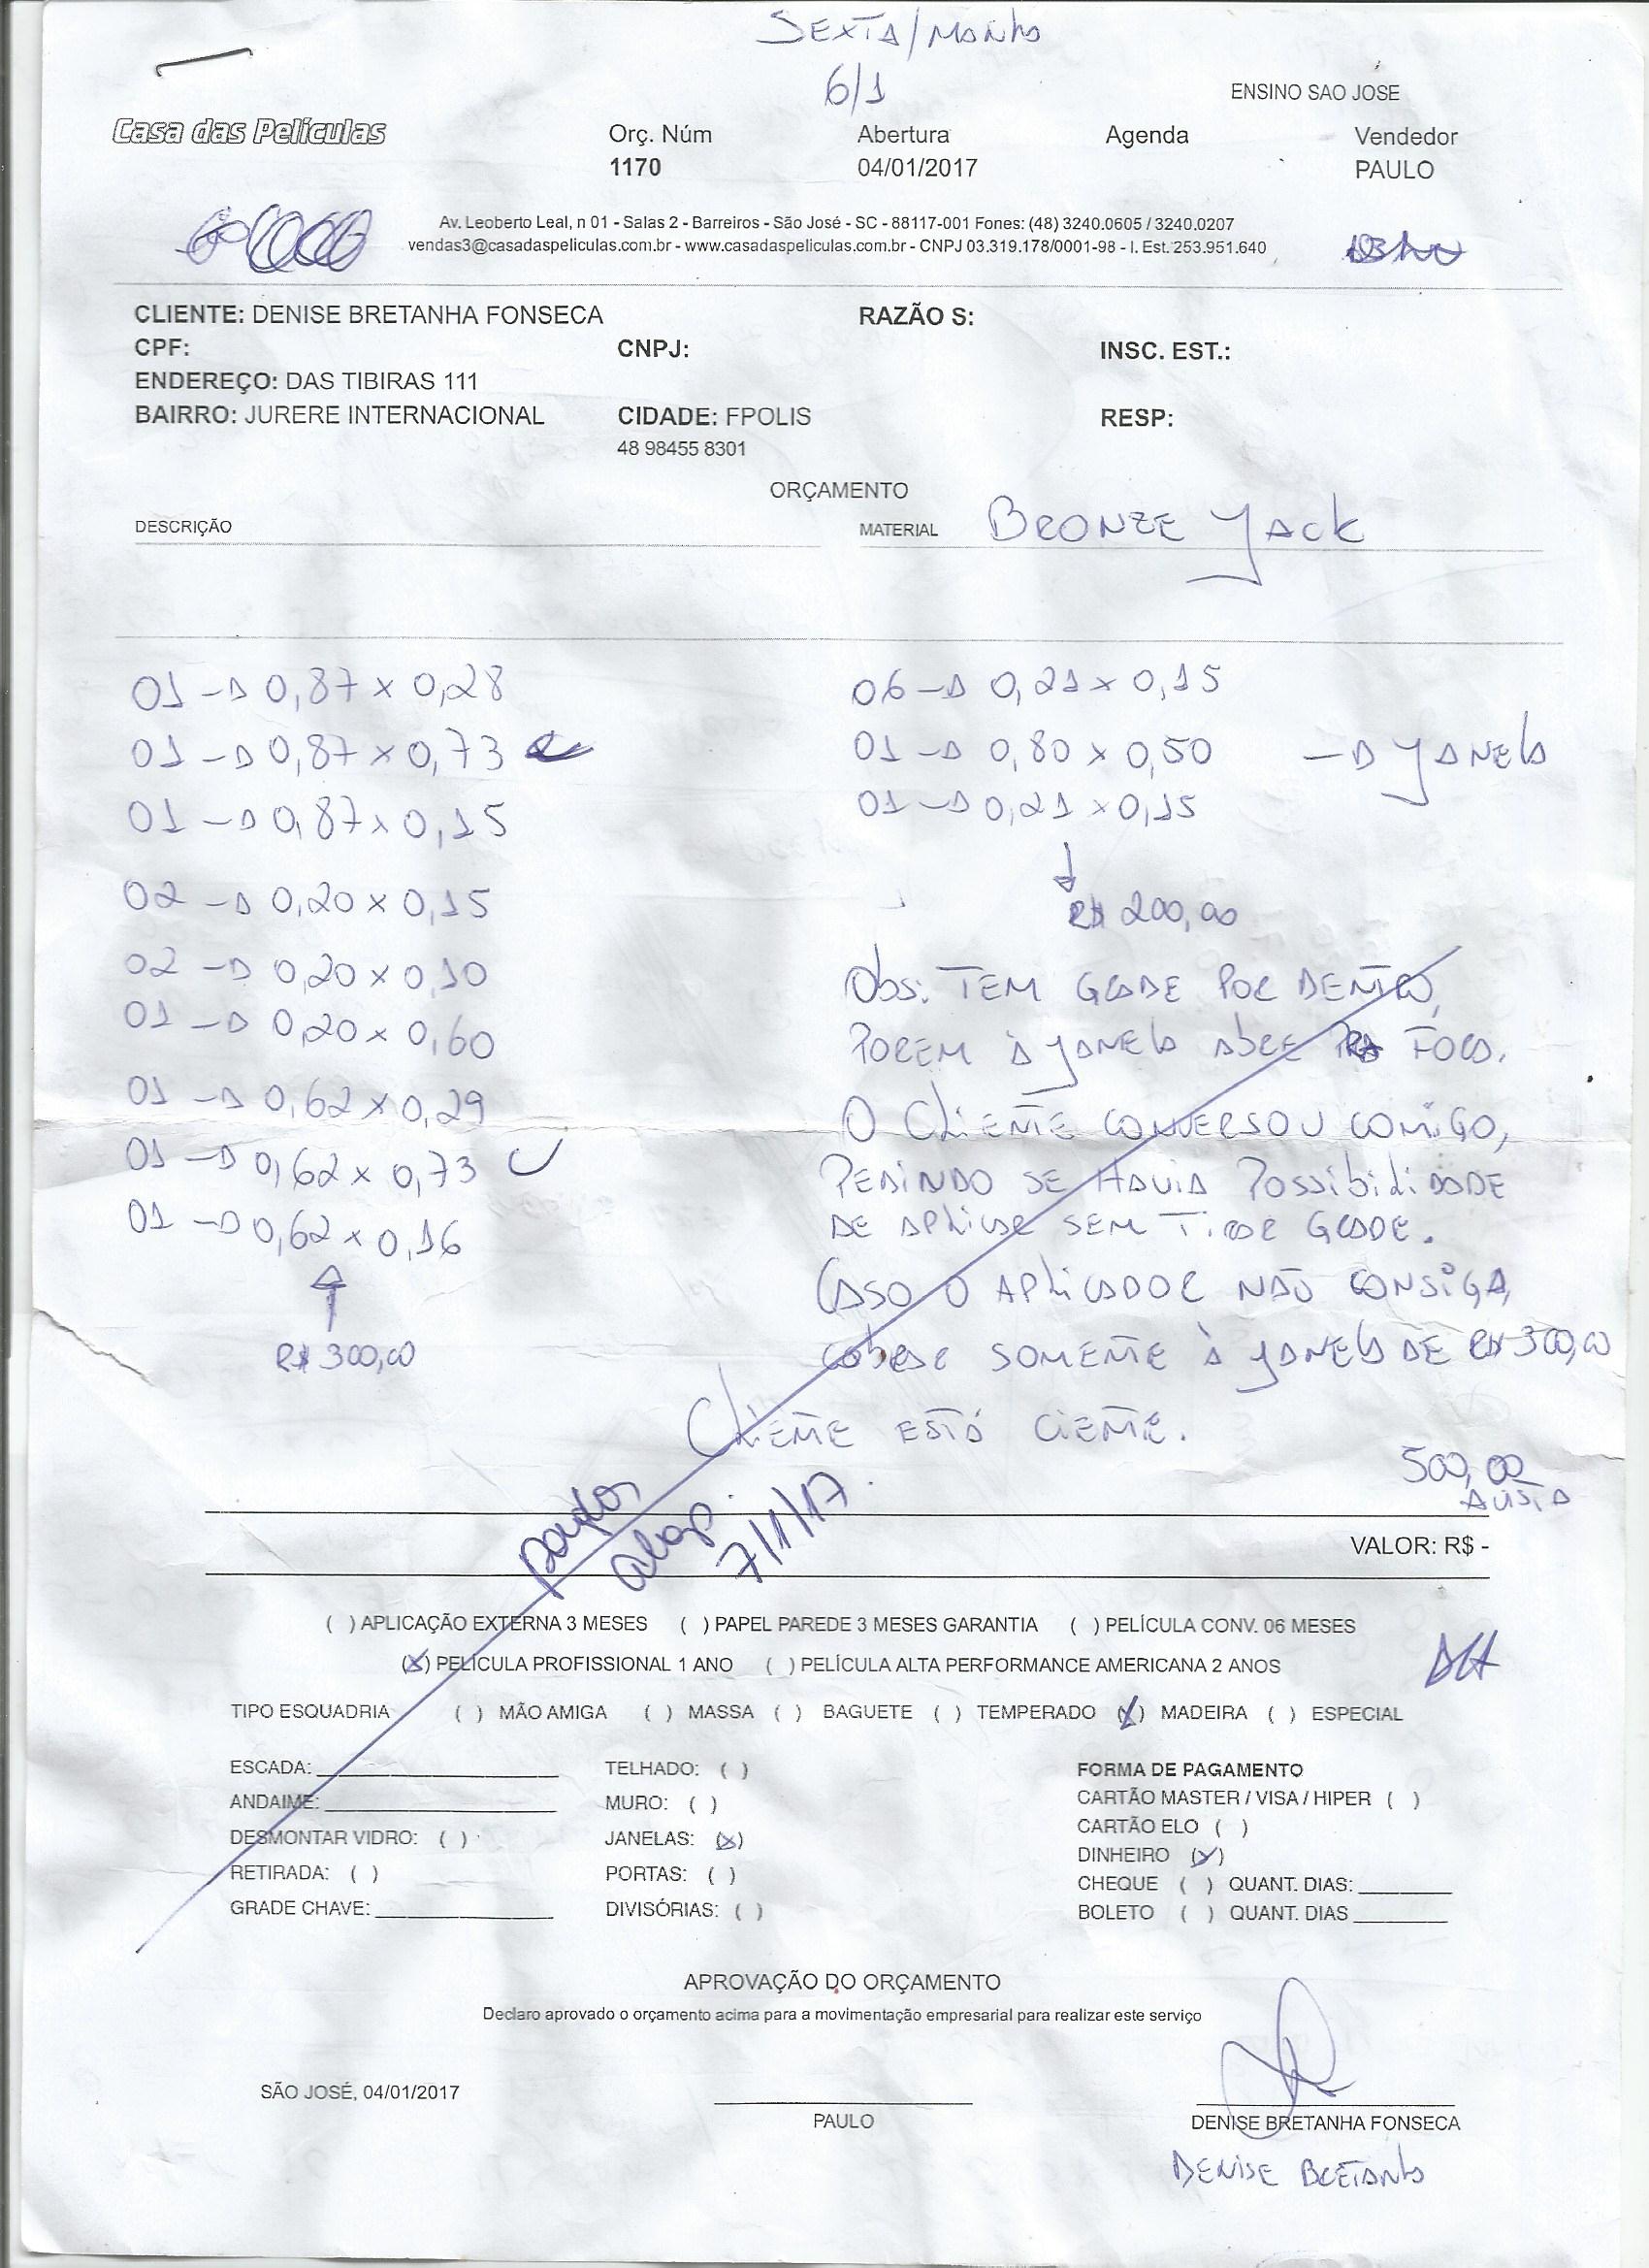 SEXTA/MANHA
6/1
ENSINO SAO JOSE
Casa das Películas
Orç. Núm Abertura Agenda Vendedor
1170 04/01/2017 PAULO
Av. Leoberto Leal, n 01 - Salas 2 - Barreiros - São José - SC - 88117-001 Fones: (48) 3240.0605 / 3240.0207
vendas3@casadaspeliculas.com.br - www.casadaspeliculas.com.br - CNPJ 03.319.178/0001-98 - I. Est. 253.951.640
CLIENTE: DENISE BRETANHA FONSECA RAZÃO S:
CPF: CNPJ: INSC. EST.:
ENDEREÇO: DAS TIBIRAS 111
BAIRRO: JURERE INTERNACIONAL CIDADE: FPOLIS RESP:
48 98455 8301
ORÇAMENTO
DESCRIÇÃO MATERIAL BRONZE JACK
01 → 0,87 x 0,28
01 → 0,87 x 0,73
01 → 0,87 x 0,15
02 → 0,20 x 0,15
02 → 0,20 x 0,10
01 → 0,20 x 0,60
01 → 0,62 x 0,29
01 → 0,62 x 0,73
01 → 0,62 x 0,16
R$ 300,00
06 → 0,21 x 0,15
01 → 0,80 x 0,50 → JANELA
01 → 0,21 x 0,15
R$ 200,00
Obs: TEM GRADE POR DENTRO,
POREM À JANELA ABRE PRA FORA.
O CLIENTE CONVERSOU COMIGO,
PEDINDO SE HAVIA POSSIBILIDADE
DE APLICAR SEM TIRAR GRADE.
CASO O APLICADOR NÃO CONSIGA,
COBRAR SOMENTE À JANELA DE R$ 300,00
CLIENTE ESTÁ CIENTE.
500,00
AVISTA
7/1/17
VALOR: R$ -
( ) APLICAÇÃO EXTERNA 3 MESES ( ) PAPEL PAREDE 3 MESES GARANTIA ( ) PELÍCULA CONV. 06 MESES
(X) PELÍCULA PROFISSIONAL 1 ANO ( ) PELÍCULA ALTA PERFORMANCE AMERICANA 2 ANOS
TIPO ESQUADRIA ( ) MÃO AMIGA ( ) MASSA ( ) BAGUETE ( ) TEMPERADO (X) MADEIRA ( ) ESPECIAL
ESCADA: TELHADO: ( ) FORMA DE PAGAMENTO
ANDAIME: MURO: ( ) CARTÃO MASTER / VISA / HIPER ( )
DESMONTAR VIDRO: ( ) JANELAS: (X) CARTÃO ELO ( )
RETIRADA: ( ) PORTAS: ( ) DINHEIRO (X)
GRADE CHAVE: DIVISÓRIAS: ( ) CHEQUE ( ) QUANT. DIAS:
BOLETO ( ) QUANT. DIAS
APROVAÇÃO DO ORÇAMENTO
Declaro aprovado o orçamento acima para a movimentação empresarial para realizar este serviço
SÃO JOSÉ, 04/01/2017
PAULO DENISE BRETANHA FONSECA
DENISE BRETANHA